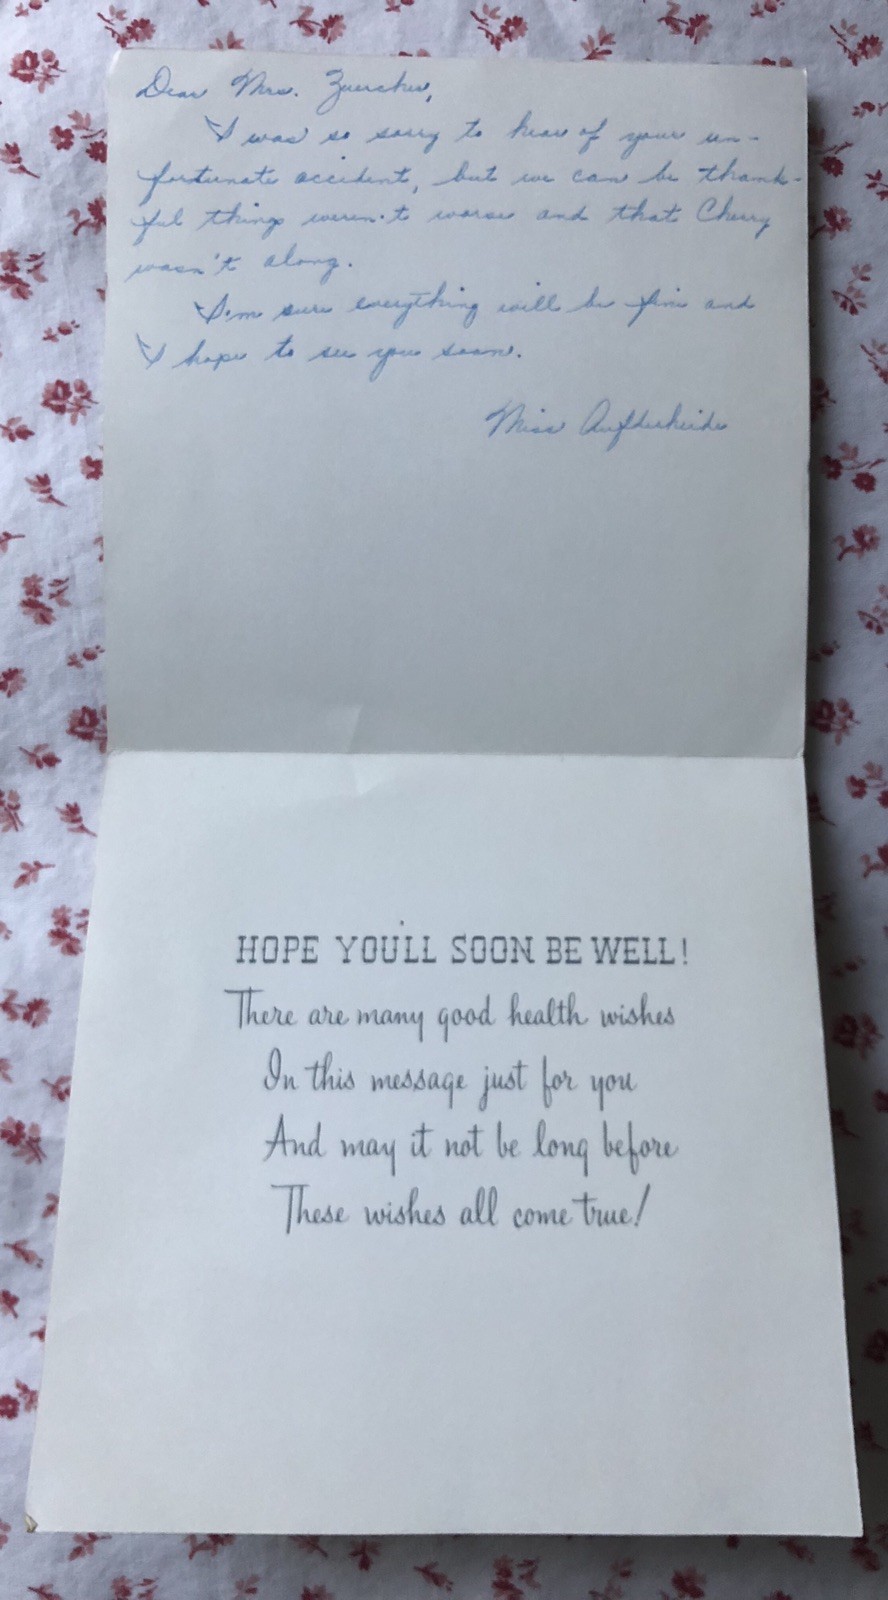 Dear Mrs. Zuercher,
I was so sorry to hear of your un-
fortunate accident, but we can be thank-
ful things weren't worse and that Cherry
wasn't along.
I'm sure everything will be fine and
I hope to see you soon.
Miss Aufderheide
HOPE YOU'LL SOON BE WELL!
There are many good health wishes
In this message just for you
And may it not be long before
These wishes all come true!